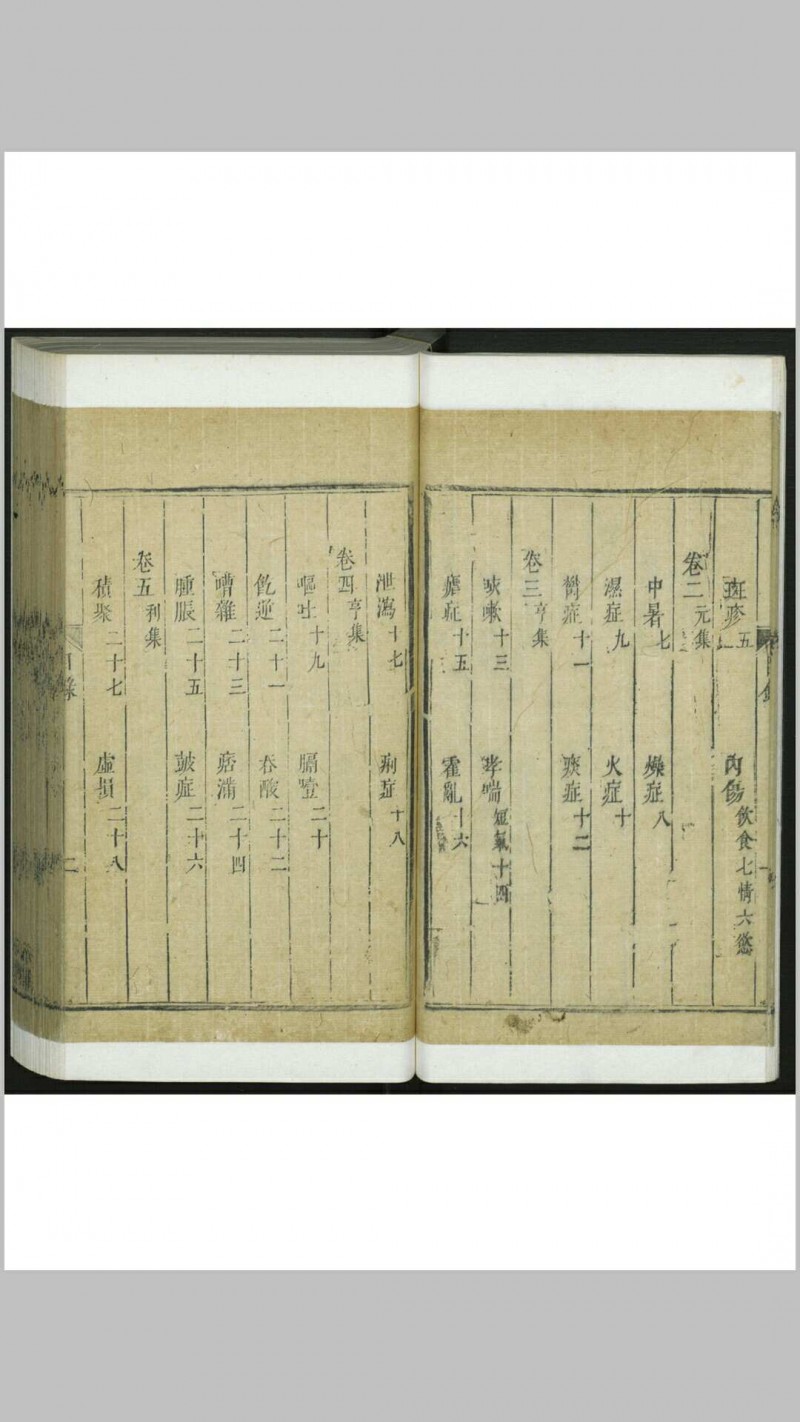 斑疹五 內傷飲食七情六慾
卷二元集
中暑七 燥症八
濕症九 火症十
鬱症十一 痰症十二
卷三亨集
咳嗽十三 哮喘短氣十四
瘧症十五 霍亂十六
泄瀉十七 痢症十八
卷四亨集
嘔吐十九 膈噎二十
呃逆二十一 吞酸二十二
嘈雜二十三 痞滿二十四
腫脹二十五 鼓症二十六
卷五利集
積聚二十七 虛損二十八
目錄 二